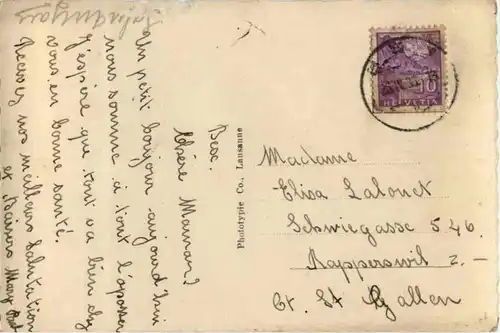 Bex.
Chère Maman?
Un petit bonjour aujourd'hui
nous somme à tout l'oposser
J'espère que tout va bien chez
vous en bonne santé.
Recevez nos meilleurs Salutation
et Baisers Mary
Phototypie Co., Lausanne
10
HELVETIA
Madame
Elisa Lalouet
Schwiegasse 546.
Rapperswil 2.-
Ct. St Gallen